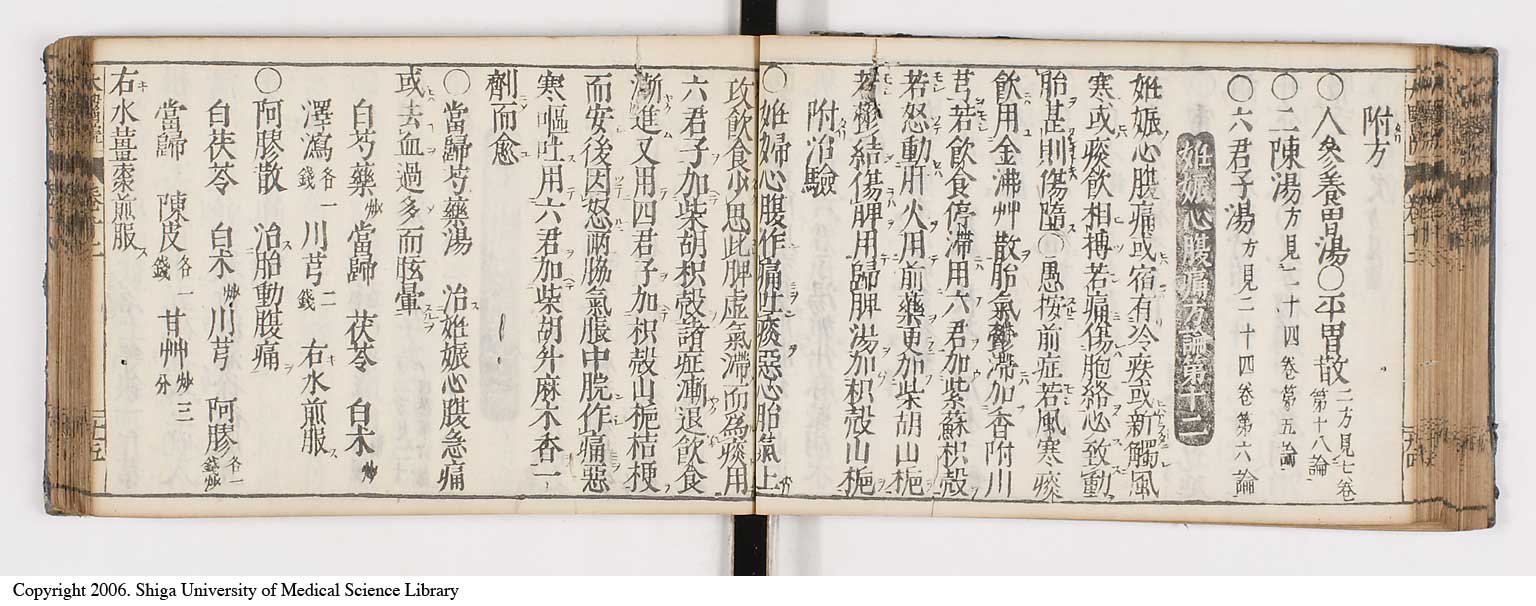 附方
〇人參養胃湯〇平胃散二方見七卷第十八論
〇二陳湯方見二十四卷第五論
〇六君子湯方見二十四卷第六論
姙娠心腹痛方論第十二
姙娠心腹痛或宿有冷疾或新觸風
寒或痰飲相搏若痛傷胞絡必致動
胎甚則傷墮〇愚按前症若風寒痰
飲用金沸艸散胎氣欝滯加香附川
芎若飲食停滯用六君加紫蘇枳殼
若怒動肝火用前藥更加柴胡山梔
若欝結傷脾用歸脾湯加枳殼山梔
附治驗
〇姙婦心腹作痛吐痰惡心胎氣上
攻飲食少思此脾虛氣滯而爲痰用
六君子加柴胡枳殼諸症漸退飲食
漸進又用四君子加枳殼山梔桔梗
而安後因怒兩脇氣脹中脘作痛惡
寒嘔吐用六君加柴胡升麻木香一
劑而愈
〇當歸芍藥湯 治姙娠心腹急痛
或去血過多而眩暈
白芍藥炒 當歸 茯苓 白朮炒
澤瀉各一錢 川芎二錢 右水煎服
〇阿膠散 治胎動腹痛
白茯苓 白朮炒 川芎 阿膠各一錢炒
當歸 陳皮各一錢 甘艸炒三分
右水薑棗煎服
Copyright 2006. Shiga University of Medical Science Library